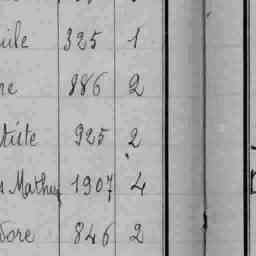 uile 325 1
ne 886 2
tiste 925 2
s Mathieu 1907 4
dore 846 2